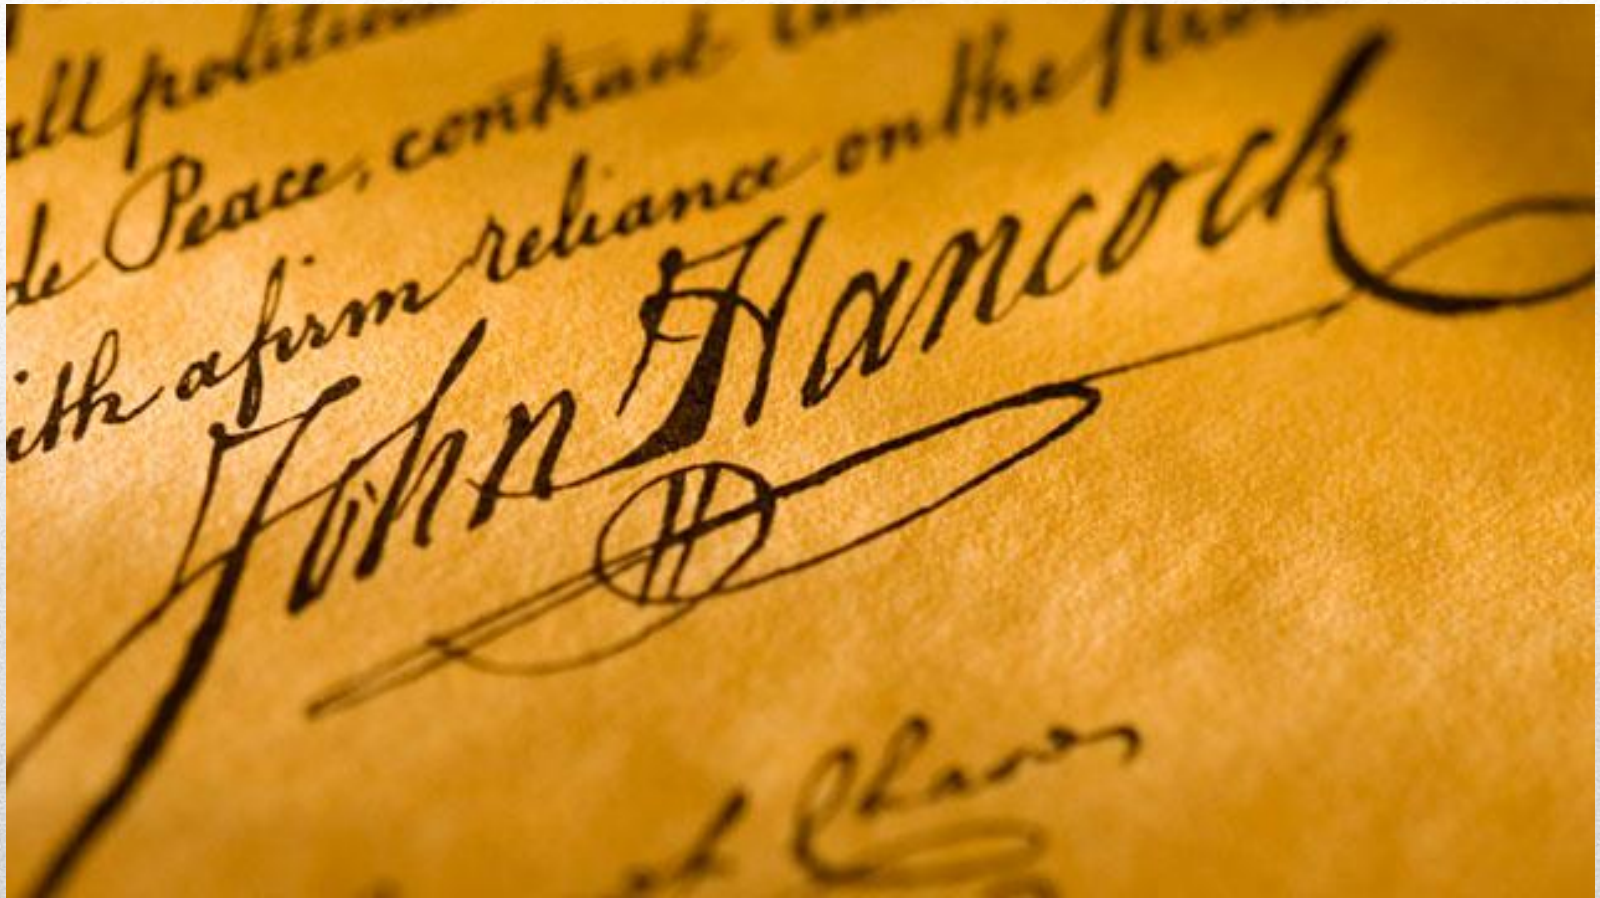 all politic
de Peace, contract
ith a firm reliance on the
John Hancock
Chase